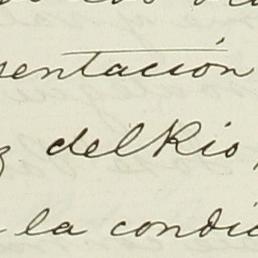 sentación
z del Rio,
la condic